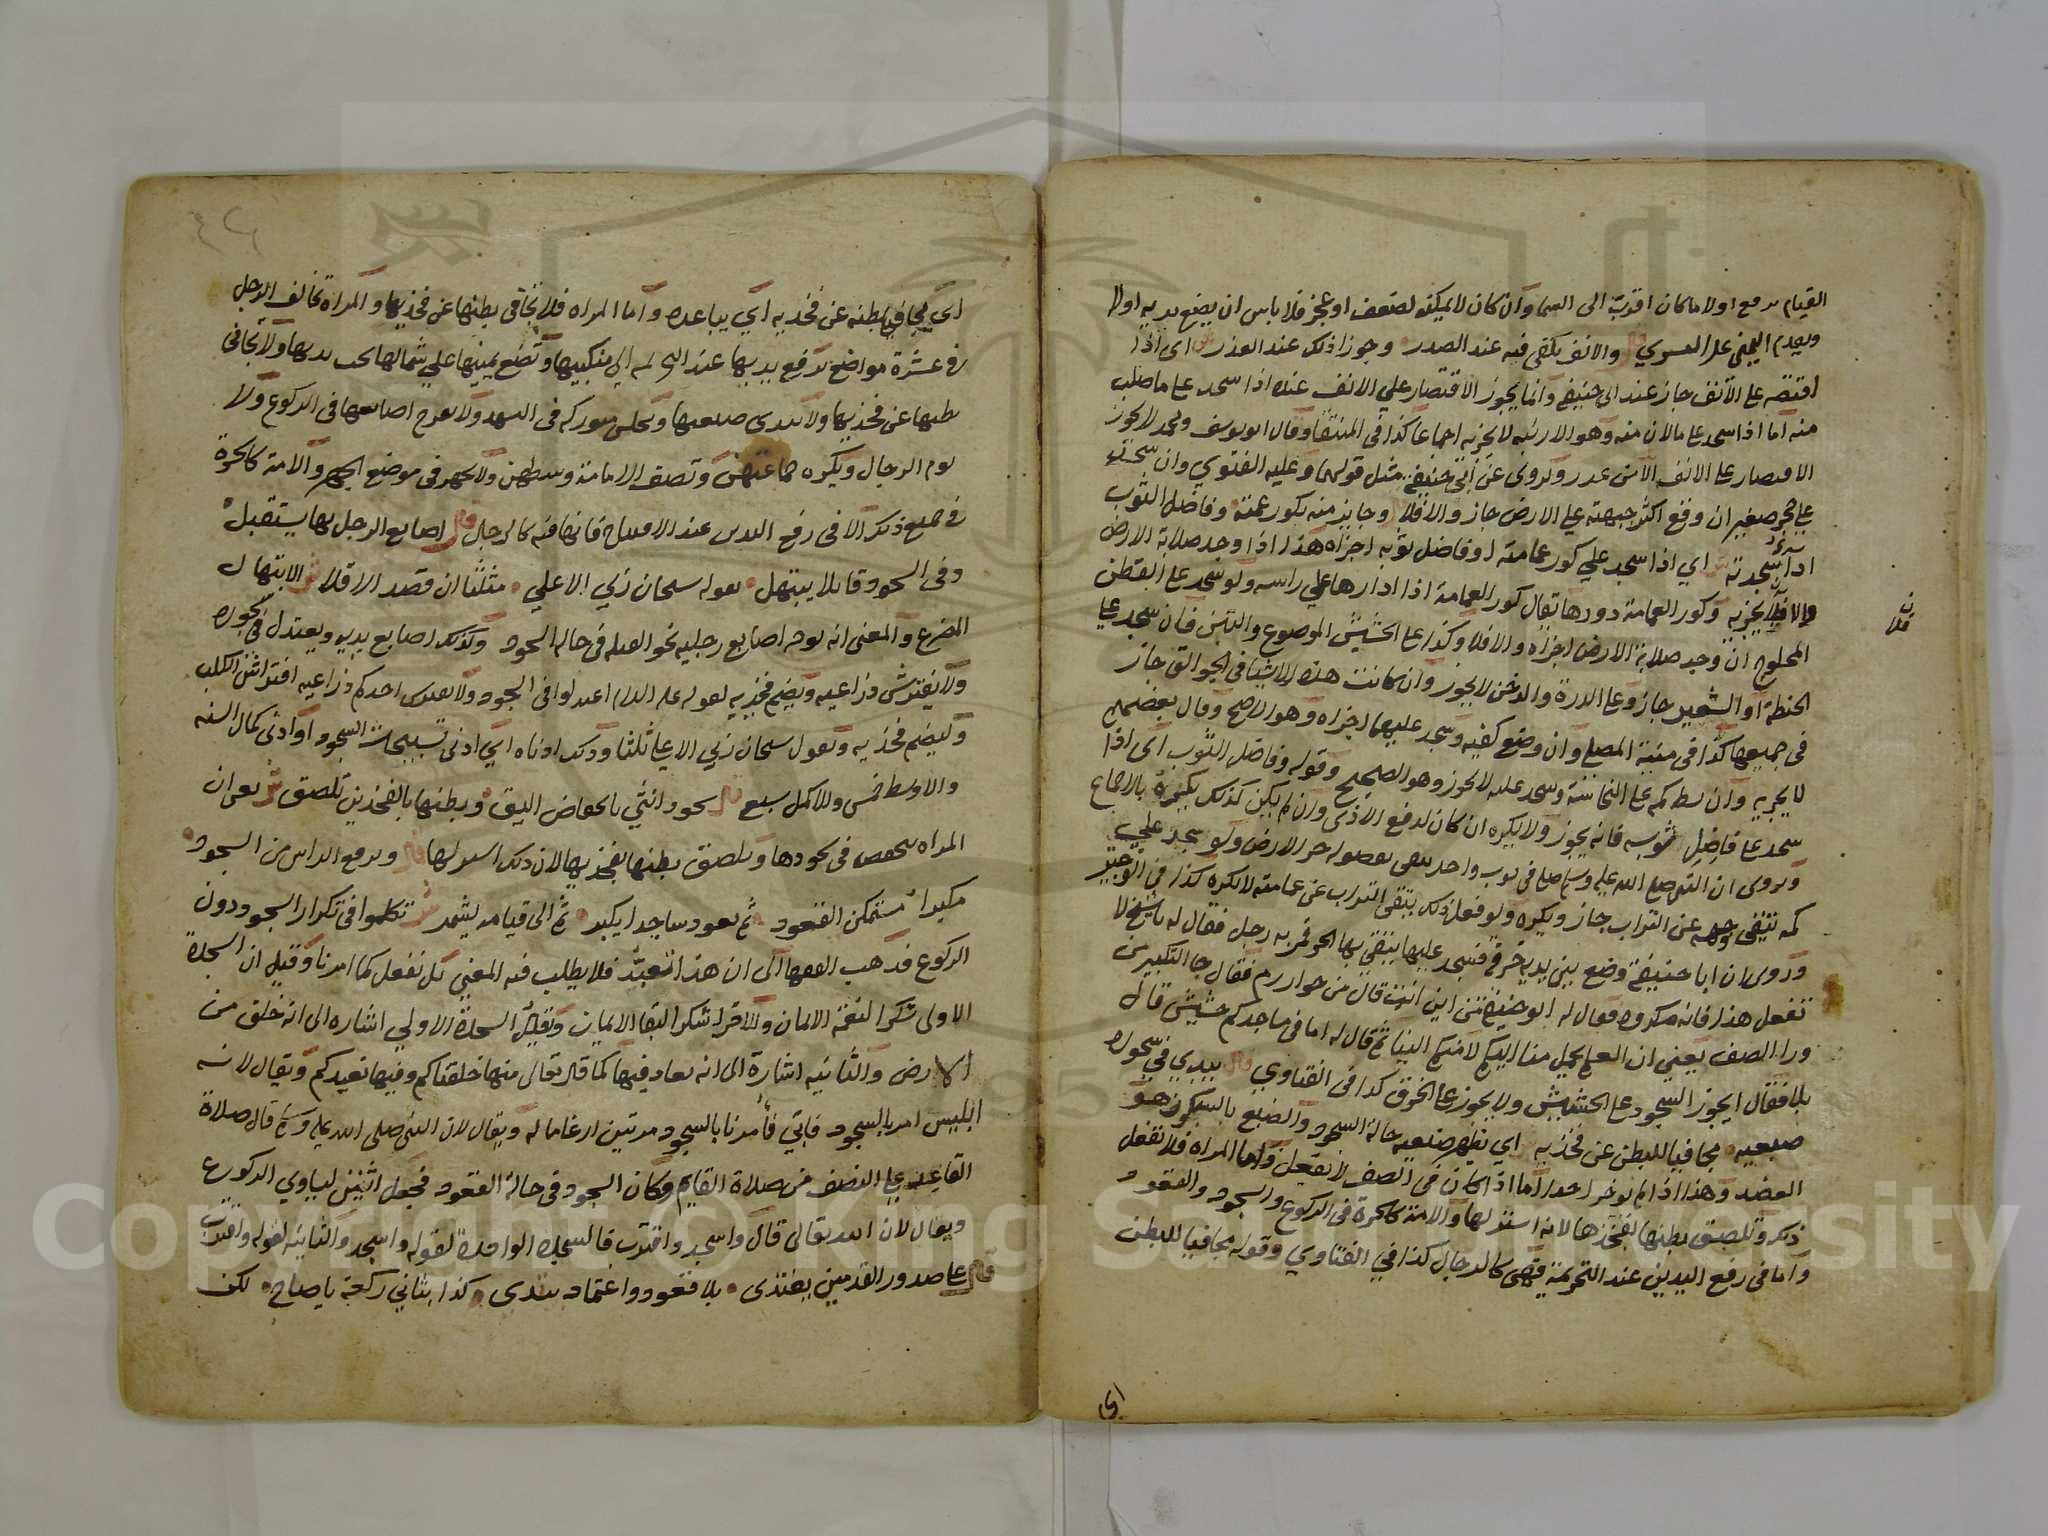 القيام يرفع اولا ما كان اقرب الى السما وان كان لا يمكنه لضعف او عجز فلا باس ان يضع يديه اولا
ويقدم اليمنى على اليسرى والانف يكفى فيه عند الصدر وجوز اذلك عند العذر ش اى اذا
اقتصر على الانف جاز عند ابى حنيفة وانما يجوز الاقتصار على الانف عنده اذا سجد على ما صلب
منه اما اذا سجد على ما لان منه وهو الارنبه لا يجزيه اجماعا كذا فى المنتقا وقال ابو يوسف ومحمد لا يجوز
الاقتصار على الانف الا من عذر ويروى عن ابى حنيفة مثل قولهما وعليه الفتوي وان سجدت
على حجر صغير ان وقع اكثر جبهته على الارض جاز والا فلا وجايز منه بكور عمته وفاضل الثوب
اذا سجدته ش اي اذا سجد علي كور عمامته او فاضل ثوبه اجزاه هذا اذا وجد صلابة الارض
والا فلا يجزيه وكور العمامة دورها يقال كور العمامة اذا ادارها علي راسه ولو سجد على القطن
ن
فلا
المحلوج ان وجد صلابة الارض اجزاه والا فلا وكذا على الحشيش الموضوع والتبن فان سجد على
الحنطة او الشعير جاز وعلى الذرة والدخن لا يجوز وان كانت هذه الاشيا فى الجوالق جاز
فى جميعها كذا فى منية المصلي وان وضع كفيه وسجد عليهما اجزاه وهو الاصح وقال بعضهم
لا يجزيه وان بسط كمه على النجاسة وسجد عليه لا يجوز وهو الصحيح وقوله وفاضل الثوب اى اذا
سجد على فاضل ثوبه فانه يجوز ولا يكره ان كان لدفع الاذى وان لم يكن كذلك يكره بالاجماع
ويروى ان النبى صلى الله عليه وسلم صلى فى ثوب واحد يتقى بفضوله حر الارض ولو سجد على
كمه تتقى وجهه عن التراب جاز ويكره ولو فعل ذلك يتقى التراب عن عمامته لا يكره كذا فى الوجيز
وروى ان ابا حنيفة وضع بين يديه خرقة فسجد عليها يتقى بها الحر فمر به رجل فقال له يا شيخ لا
تفعل هذا فانه مكروه فقال له ابو حنيفة من اين انت قال من خوارزم فقال جا التكبير من
ورا الصف يعني ان العلم يحمل منا اليكم لا منكم الينا ثم قال له اما فى مساجدكم حشيش قال
بلا فقال ايجوز السجود على الحشيش ولا يجوز على الخرق كذا فى الفتاوي قال يبدي في سجوده
ضبعيه مجافيا للبطن عن فخذيه اي يظهر ضبعيه حالة السجود والضبع بالسكون هو
العضد وهذا اذا لم يؤخر احدا اما اذا كان فى الصف لا يفعل واما المراه فلا تفعل
ذلك وتلصق بطنها بفخذها لانه استر لها والامة كالحرة فى الركوع والسجود والقعود
واما فى رفع اليدين عند التحريمة فهى كالرجال كذا في الفتاوي وقوله مجافيا للبطن
اى
اي يجافى بطنه عن فخذيه اي يباعده واما المراه فلا تجافى بطنها عن فخذيها والمراه تخالف الرجل
فى عشرة مواضع ترفع يديها عند التحريمه الى منكبيها وتضع يمينها علي شمالها تحت ثدييها ولا تجافى
بطنها عن فخذيها ولا تبدى ضبعيها وتجلس متوركه فى التشهد ولا تفرج اصابعها فى الركوع ولا
توم الرجال ويكره جماعتهن وتقف الامامة وسطهن ولا تجهر فى موضع الجهر والامة كالحرة
فى جميع ذلك الا فى رفع اليدين عند الافتتاح فانها فيه كالرجل قال اصابع الرجل بها يستقبل
وفى السجود قايلا يبتهل بقوله سبحان ربي الاعلي مثلثا ان قصد الاقلا ش الابتهال
التضرع والمعنى انه يوجه اصابع رجليه نحو القبله فى حالة السجود وكذلك اصابع يديه ويعتدل فى سجوده
ولا يفترش ذراعيه ويضم فخذيه لقوله عليه السلام اعتدلوا فى السجود ولا يفترش احدكم ذراعيه افتراش الكلب
وليضم فخذيه ويقول سبحان ربي الاعلى ثلثا وذلك ادناه اي ادنى تسبيحات السجود او ادنى كمال السنه
والاوسط خمس والاكمل سبع قال سجود انثي بانخفاض اليق وبطنها بالفخذين تلصق ش يعنى ان
المراه تنخفض فى سجودها وتلصق بطنها بفخذيها لان ذلك استر لها قال ويرفع الراس من السجود
مكبرا مستمكن القعود ثم يعود ساجدا يكبر ثم الى قيامه يشمر ش تكلموا فى تكرار السجود دون
الركوع فذهب الفقها الى ان هذا تعبد فلا يطلب فيه المعنى بل نفعل كما امرنا وقيل ان السجدة
الاولى شكرا لنعمة الايمان والاخرى شكرا لبقا الايمان وقيل السجدة الاولى اشاره الى انه خلق من
الارض والثانيه اشارة الى انه يعاد فيها كما قال تعالى منها خلقناكم وفيها نعيدكم ويقال لان
ابليس امر بالسجود فابي فامرنا بالسجود مرتين ارغاما له ويقال لان النبى صلى الله عليه وسلم قال صلاة
القاعد على النصف من صلاة القايم وكان السجود فى حالة القعود فجعل اثنين ليساوي الركوع
ويقال لان الله تعالى قال واسجد واقترب فالسجدة الواحدة لقوله واسجد والثانيه لقوله واقترب
قال على صدور القدمين يغتذى بلا قعود واعتماد يبتدى كذا بثاني ركعة يا صاح لكن